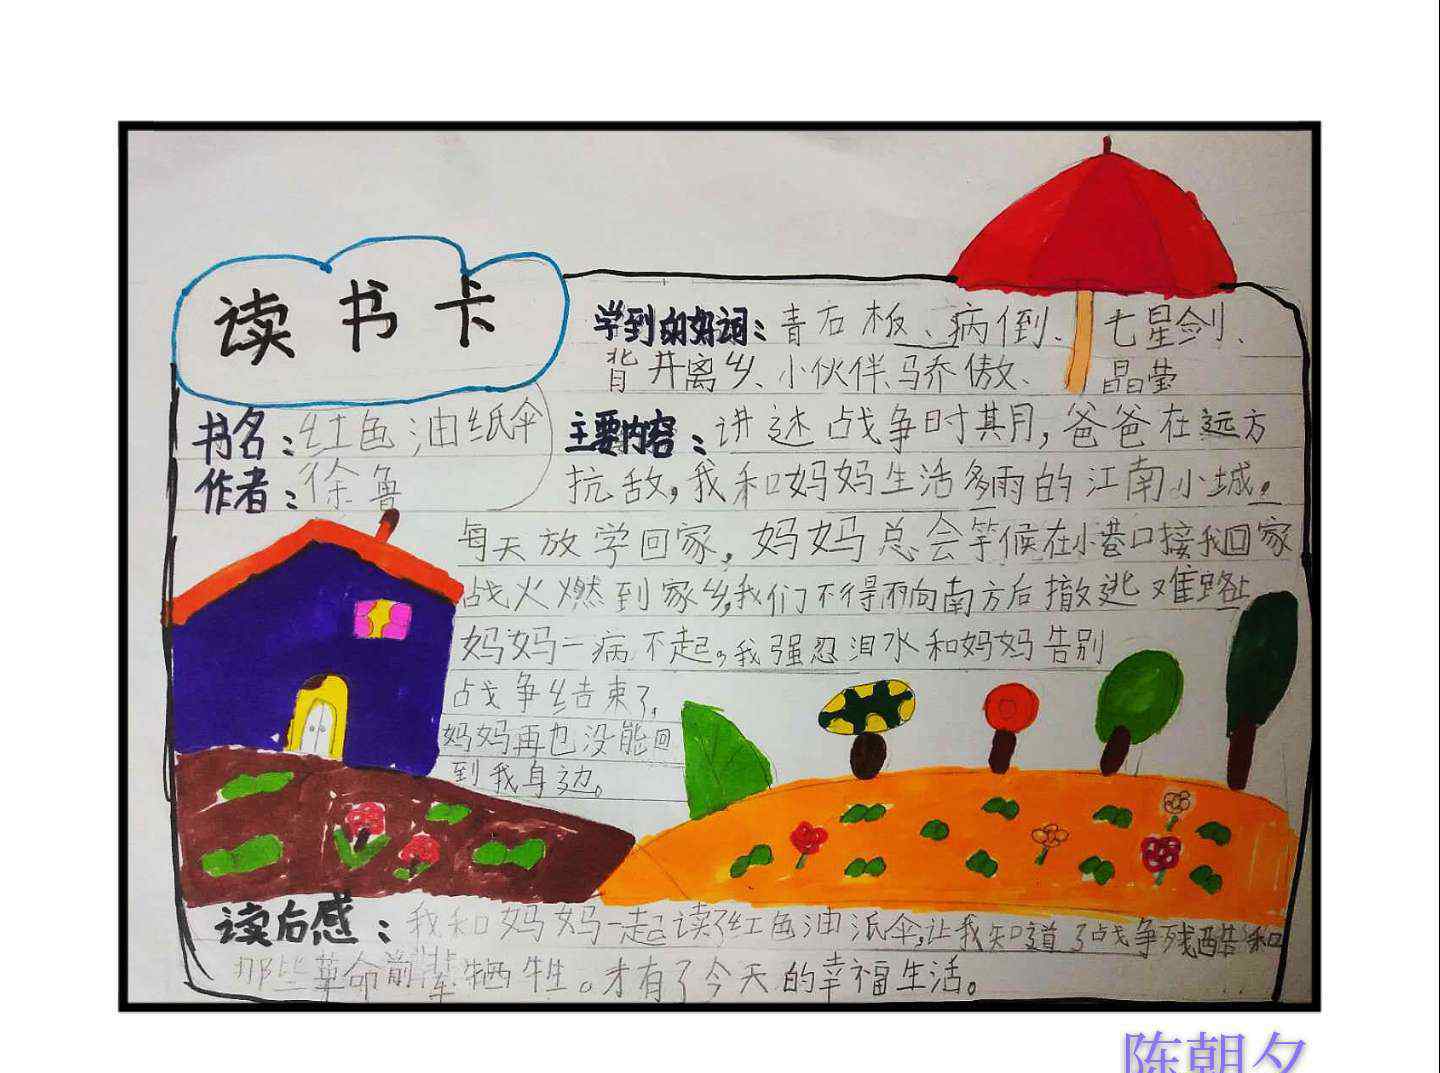 读书卡
学到的好词：青石板、病倒、七星剑、
背井离乡、小伙伴、骄傲、晶莹
书名：红色油纸伞
作者：徐鲁
主要内容：讲述战争时其月，爸爸在远方
抗敌，我和妈妈生活多雨的江南小城，
每天放学回家，妈妈总会等候在小巷口接我回家
战火燃到家乡，我们不得不向南方后撤逃难路上
妈妈一病不起，我强忍泪水和妈妈告别
战争结束了，
妈妈再也没能回
到我身边。
读后感：我和妈妈一起读了红色油纸伞，让我知道了战争残酷和
那些革命前辈牺牲。才有了今天的幸福生活。
陈朝夕